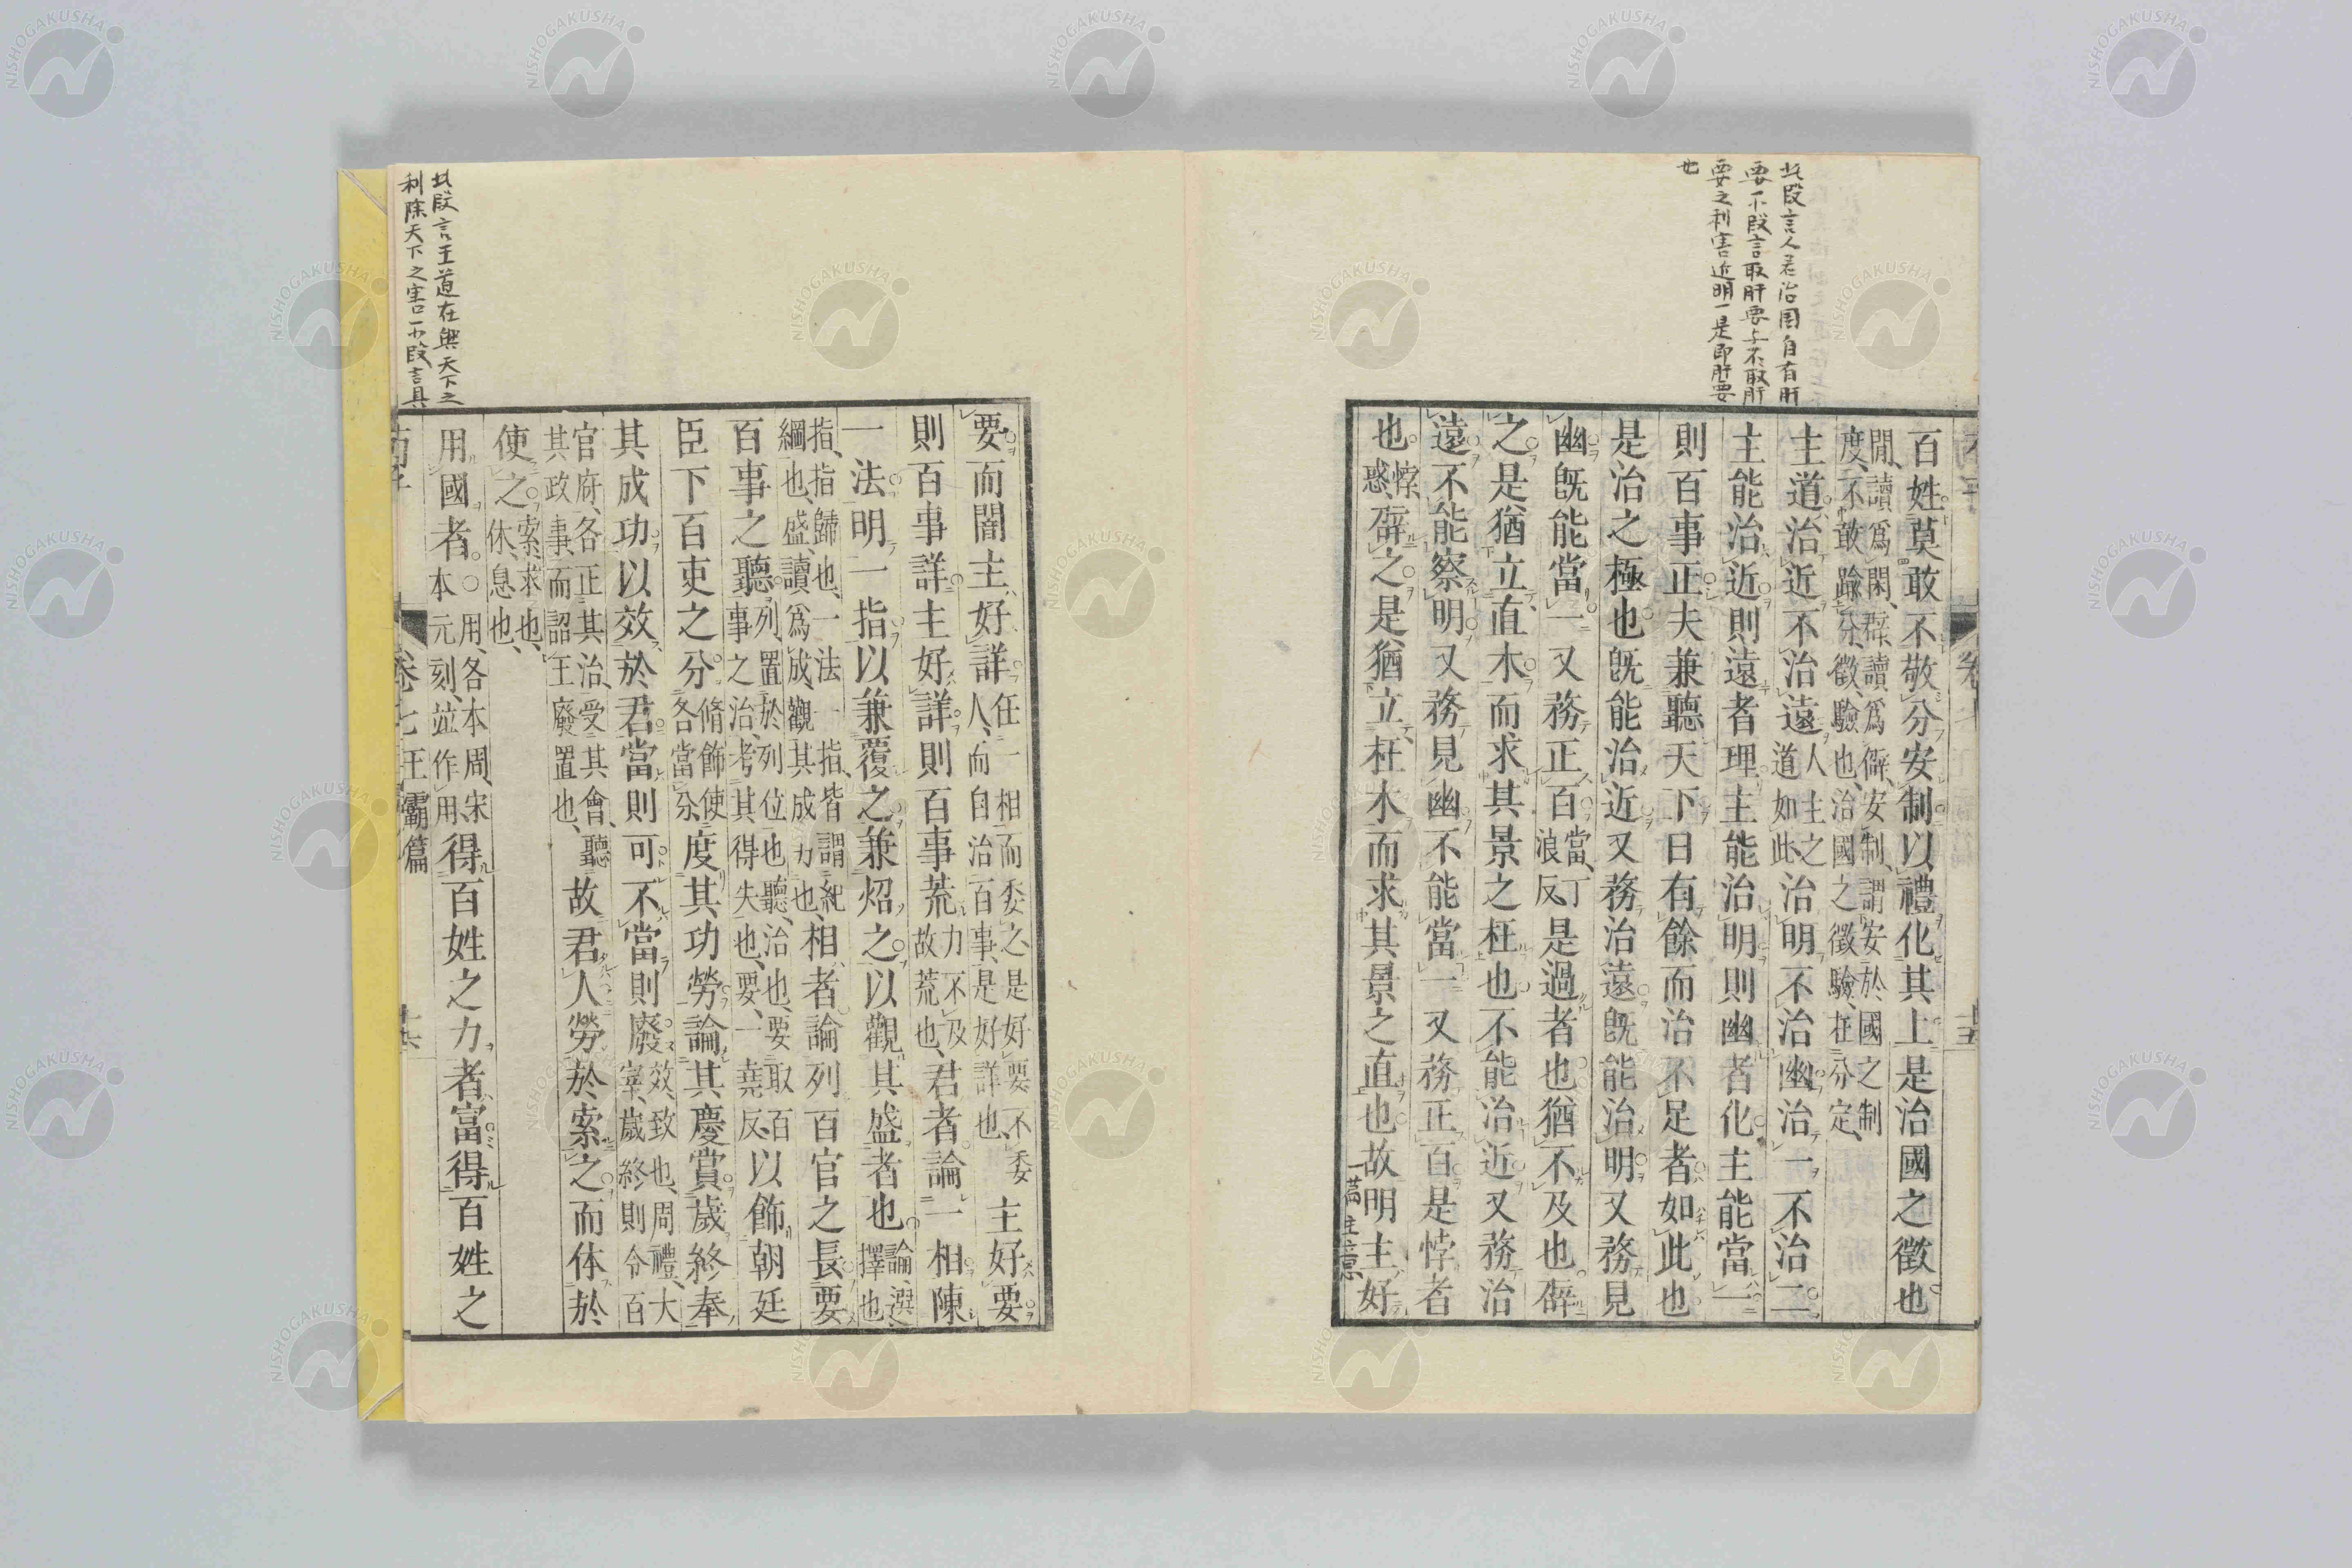 此段言人君治國自有肝
要一不段言取肝要与不取肝
要之利害近明一是即肝要
也
百姓莫敢不敬分安制以禮化其上是治國之徵也
閒、讀爲閑、辟、讀爲僻、安制、謂安於國之制
度、不敢踰分、徵、驗也、治國之徵驗、在分定、
主道治近不治遠人主之道如此治明不治幽治一不治二
主能治近則遠者理主能治明則幽者化主能當一
則百事正夫兼聽天下日有餘而治不足者如此也
是治之極也既能治近又務治遠既能治明又務見
幽既能當一又務正百當、丁浪反、是過者也猶不及也辟
之是猶立直木而求其景之枉也不能治近又務治
遠不能察明又務見幽不能當一又務正百是悖者
也悖、惑、辟之是猶立枉木而求其景之直也故明主好
要而闇主好詳任一相而委之、是好要、不委人、而自治百事、是好詳也、主好要
則百事詳主好詳則百事荒力不及故荒也、君者論一相陳
一法明一指以兼覆之兼炤之以觀其盛者也論、選擇也
指、指歸也、一法一指、皆謂紀綱也、盛、讀爲成、觀其成力也、相者論列百官之長要
百事之聽列、置於列位也、聽、治也、要取百事之治、考其得失也、要、一堯反、以飾朝廷
臣下百吏之分脩飾使各當分、度其功勞論其慶賞歲終奉
其成功以效於君當則可不當則廢效、致也、周禮、大宰、歲終則令百
官府、各正其治、受其會、聽其政事、而詔王廢置也、故君人勞於索之而休於
使之索、求也、休、息也、
用國者。○用、各本周、宋本元刻、竝作用、得百姓之力者富得百姓之
卷七 王霸篇
此段言王道在興天下之
利除天下之害一不段言具